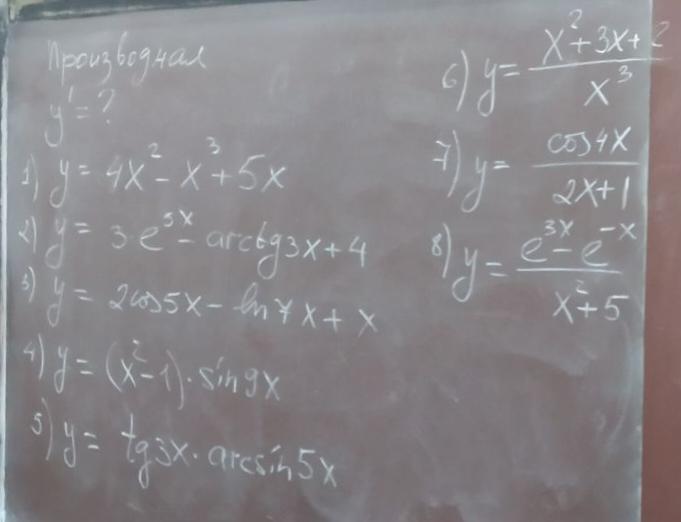 Производная
y' = ?
1) y = 4x² - x³ + 5x
2) y = 3·e^{5x} - arctg3x + 4
3) y = 2cos5x - ln7x + x
4) y = (x² - 1)·sin9x
5) y = tg3x·arcsin5x
6) y = \frac{x² + 3x + 2}{x³}
7) y = \frac{cos4x}{2x + 1}
8) y = \frac{e^{3x} - e^{-x}}{x² + 5}